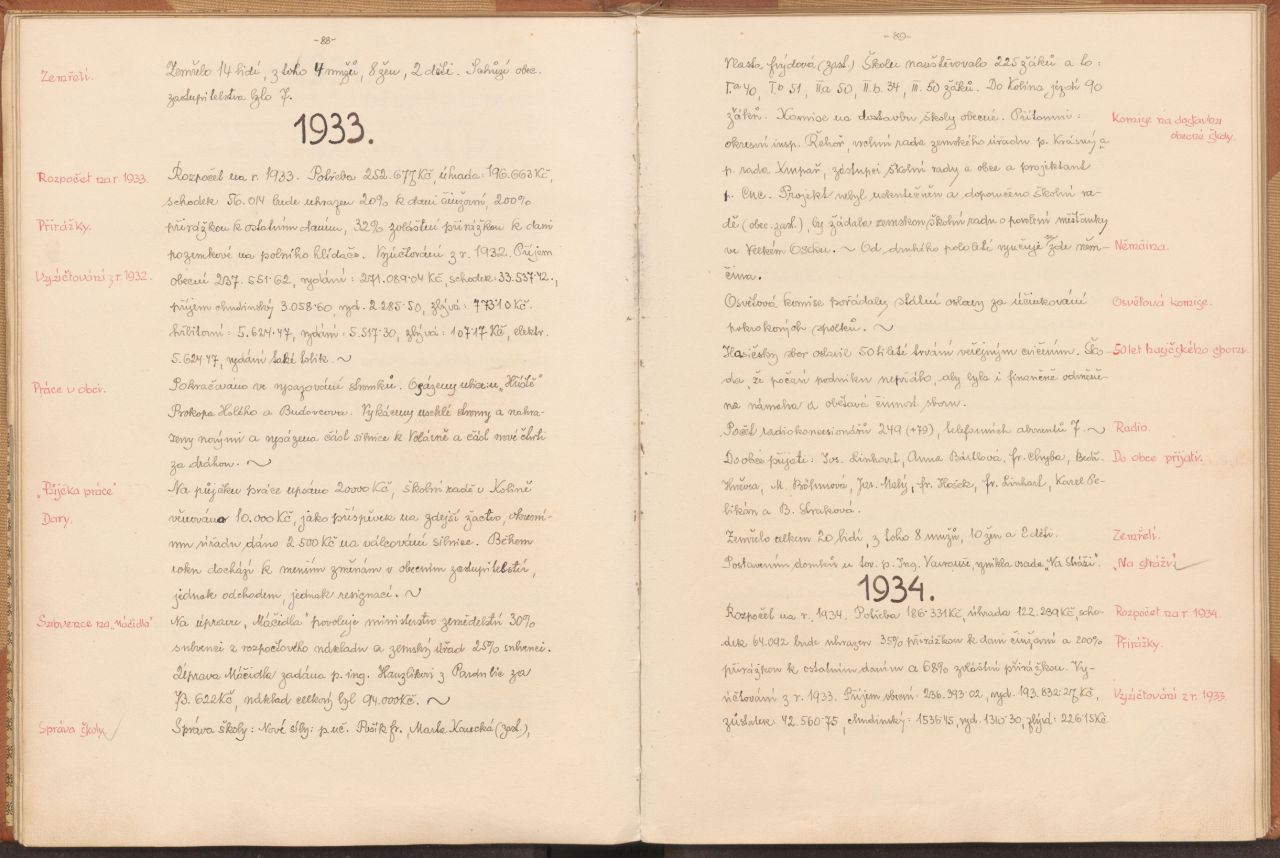 -88-
Zemřelí.
Zemřelo 14 lidí, z toho 4 mužů, 8 žen, 2 děti. Schůzí obec.
zastupitelstva bylo 7.
1933.
Rozpočet na r. 1933.
Rozpočet na r. 1933. Potřeba 252.677Kč úhrada: 196.663Kč,
schodek 56.014 bude uhrazen 20% k dani činžovní, 200%
Přirážky.
přirážkou k ostatním daním, 32% zvláštní přirážkou k dani
pozemkové na polního hlídače. Vyúčtování z r. 1932. Příjem
Vyúčtování z r. 1932.
obecní 237.551·62, vydání: 271.089·04 Kč, schodek: 33.537·42.,
příjem chudinský 3.058·60, vyd. 2.285·50, zbývá: 773·10Kč.
hřbitovní: 5.624·47, vydání: 5.517·30, zbývá: 107·17Kč, elektr.
5.624·47, vydání také tolik. ~
Práce v obci.
Pokračováno ve vysazování stromků. Osázeny ulice:
Prokopa Holého a Budovcova. Vykáceny uschlé stromy a nahra-
zeny novými a vysázena část silnice k Volárně a část nové čtvrti
za dráhou. ~
„Půjčka práce"
Na půjčku práce upsáno 2000Kč, školní radě v Kolíně
Dary.
věnováno 10.000Kč, jako příspěvek na zdejší žactvo, okresní-
mu úřadu dáno 2 500Kč na válcování silnice. Během
roku dochází k menším změnám v obecním zastupitelství,
jednak odchodem, jednak resignací. ~
Subvence na „Máčidla"
Na úpravu „Máčidla" povoluje ministerstvo zemědělství 30%
subvenci z rozpočtového nákladu a zemský úřad 25% subvenci.
Úprava Máčidla zadána p. ing. Hauzlíkovi z Pardubic za
73.622Kč, náklad celkový byl 94.000Kč. ~
Správa školy.
Správa školy: Nové síly: p.uč. Fr., Marta (zast.),
-89-
Vlasta Frýdová (zast.) Školu navštěvovalo 225 žáků a to:
I.a 40, I.b 51, II.a 50, II.b. 34, III. 50 žáků. Do Kolína jezdí 90
žáků. Komise na dostavbu školy obecné. Přítomni:
Komise na dostavbu
obecné školy.
okresní insp. Řehoř, vrchní rada zemského úřadu p. Krásný a
p. rada zástupci školní rady a obce a projektant
p. Cuc. Projekt nebyl uskutečněn a doporučeno školní ra-
dě (obec. zast.), by žádala zemskou školní radu o povolení měšťanky
ve Velkém Oseku. ~ Od druhého pololetí vyučuje se zde něm-
Němčina.
čina.
Osvětová komise pořádala státní oslavy za účinkování
Osvětová komise.
pokrokových spolků. ~
Hasičský sbor oslavil 50tileté trvání veřejným cvičením. Ško-
50 let hasičského sboru.
da, že počasí podniku nepřálo, aby byla i finančně odměně-
na námaha a obětavá činnost sboru.
Počet radiokoncesionářů 249 (+79), telefonních abonentů 7. ~
Radio.
Do obce přijati: Jos. Linhart, Anna Bártlová, Fr. Chyba, Bedř.
Do obce přijati.
M. Böhmová, Jar. Malý, Fr. Hošek, Fr. Linhart, Karel Pe-
likán a B. Straková.
Zemřelo celkem 20 lidí, z toho 8 mužů, 10 žen a 2 děti.
Zemřelí.
Postavením domků u tov. p. Ing. Vavrouše, vznikla osada „Na Stráži".
„Na stráži"
1934.
Rozpočet na r. 1934. Potřeba 186·331Kč, úhrada 122.239Kč, scho-
Rozpočet na r. 1934.
dek 64.092 bude uhrazen 35% přirážkou k dani činžovní a 200%
Přirážky.
přirážkou k ostatním daním a 68% zvláštní přirážkou. Vy-
účtování z r. 1933. Příjem obecní: 236.393·02, vyd. 193.832·27Kč,
Vyúčtování z r. 1933.
zůstatek: 42.560·75, chudinský: 1536·45, vyd. 1310·30, zbývá: 226·15Kč.